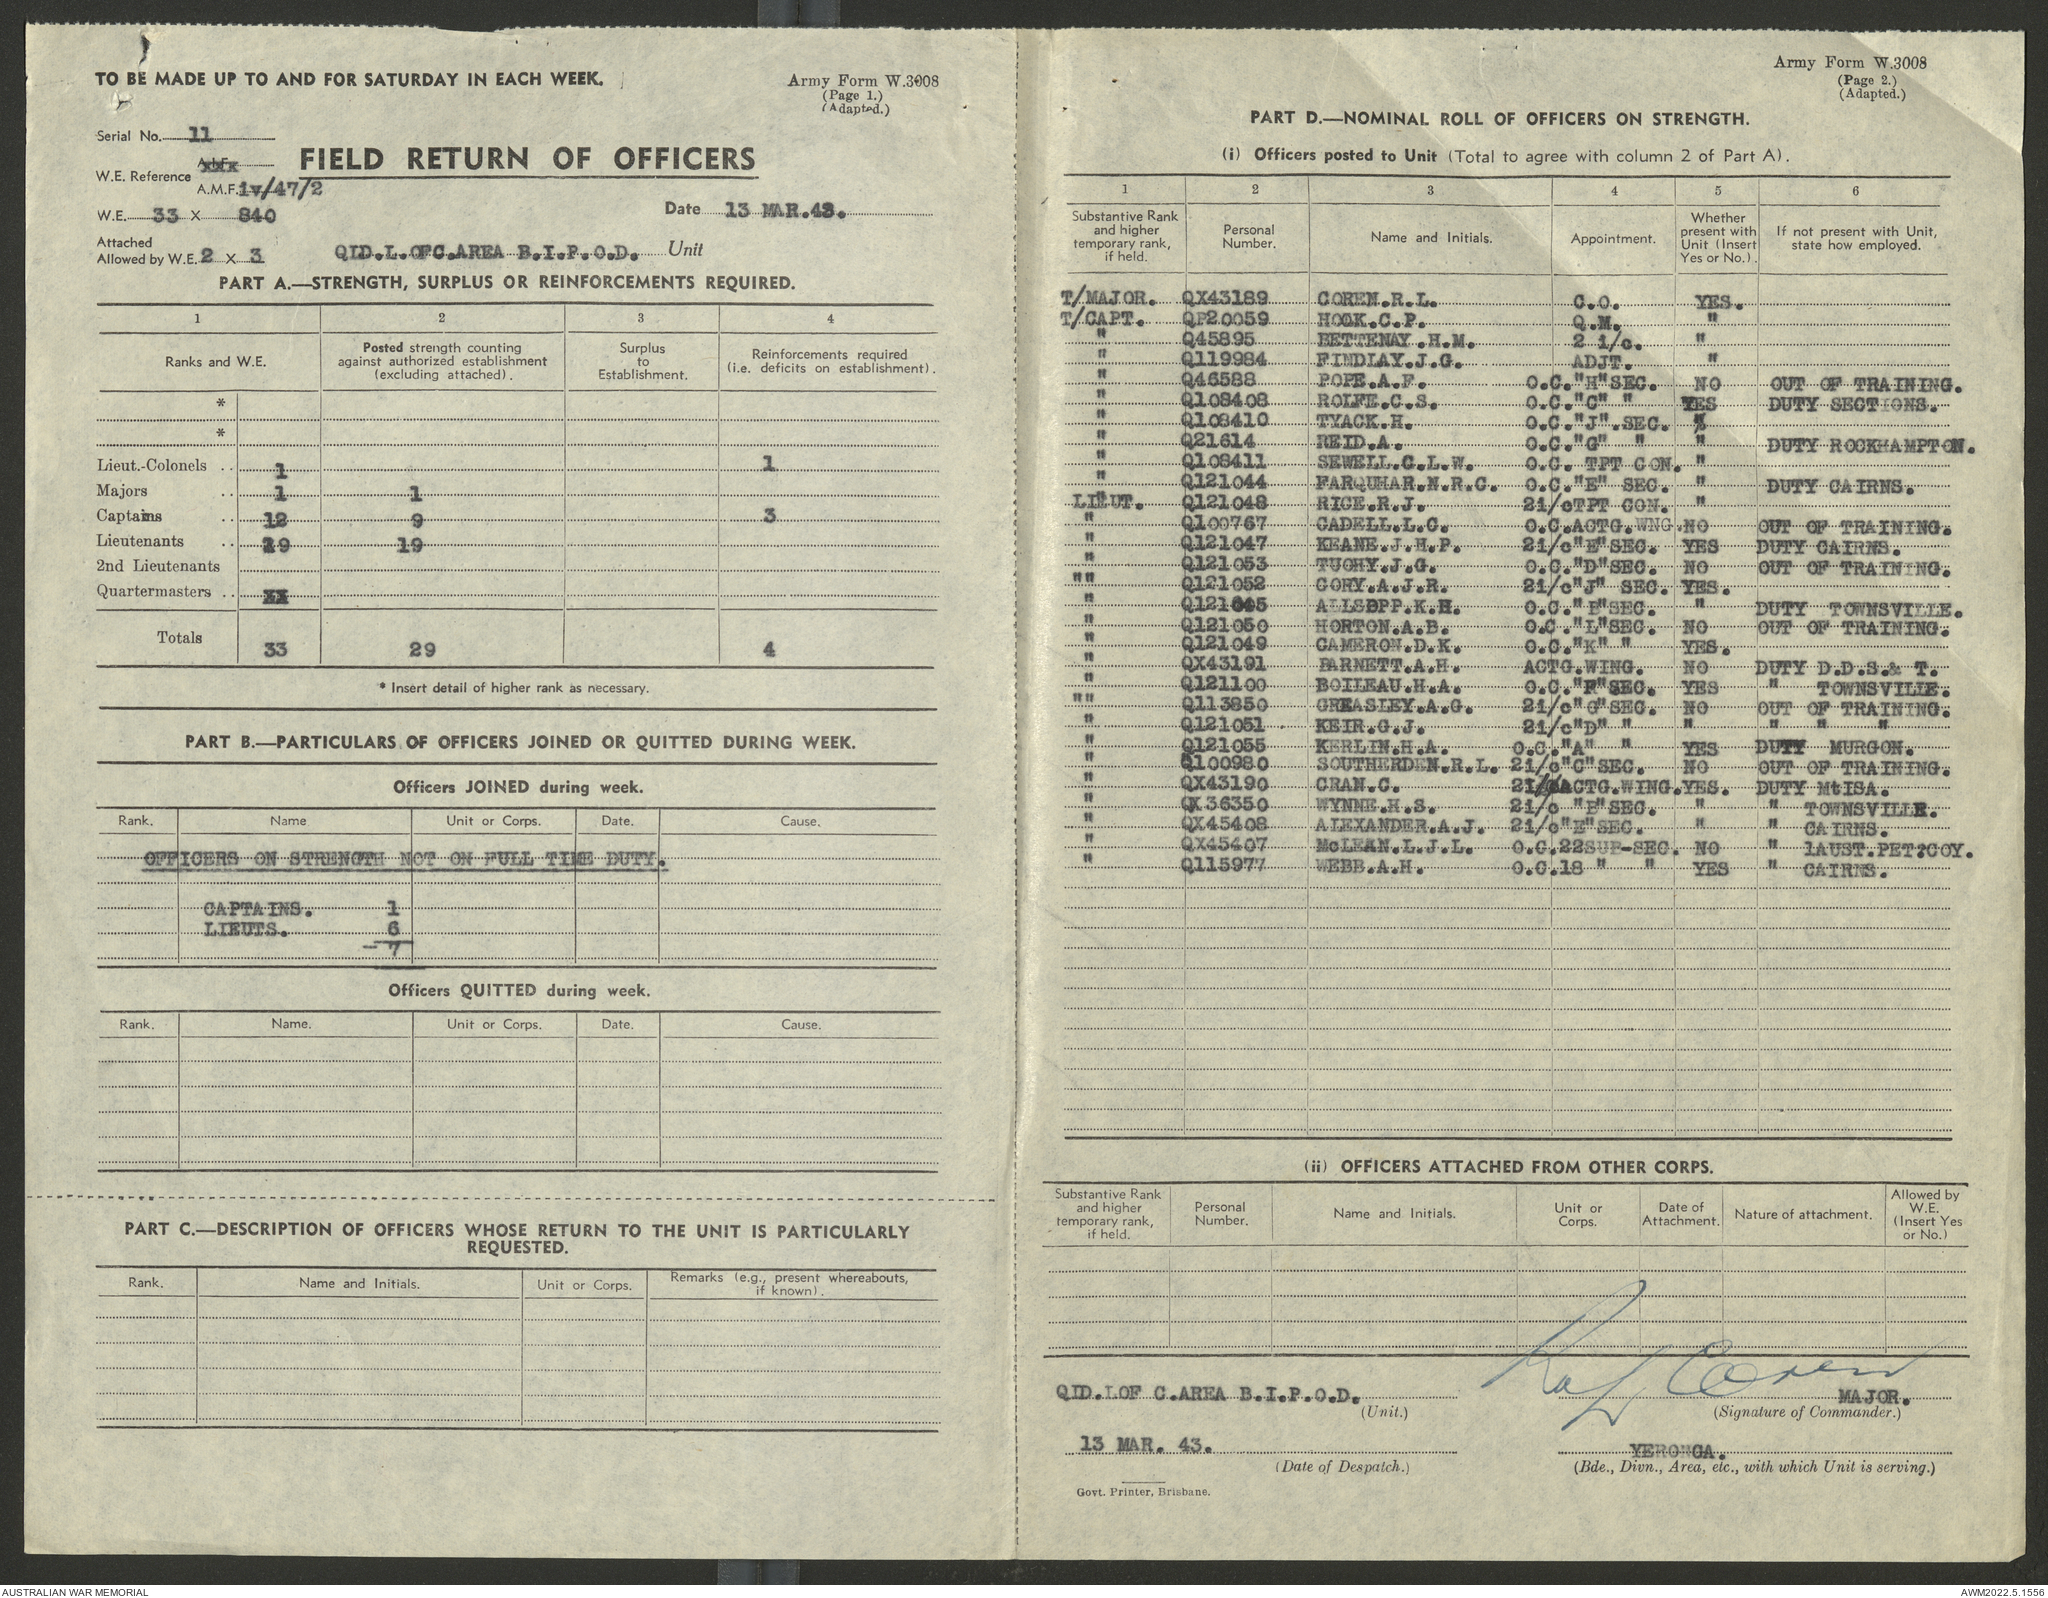 TO BE MADE UP TO AND FOR SATURDAY IN EACH WEEK.
Army Form W.3008
(Page 1.)
(Adapted.)
Serial No. 11
FIELD RETURN OF OFFICERS
W.E. Reference
A.M.F. iv/47/2
W.E. 33 X 840
Date 13 MAR.43.
Attached
Allowed by W.E. 2 X 3
QLD.L.OFC.AREA B.I.P.O.D. Unit
PART A.—STRENGTH, SURPLUS OR REINFORCEMENTS REQUIRED.
1 2 3 4
Ranks and W.E. Posted strength counting against authorized establishment (excluding attached). Surplus to Establishment. Reinforcements required (i.e. deficits on establishment).
*
*
Lieut.-Colonels .. 1 1
Majors .. 1 1
Captains .. 12 9 3
Lieutenants .. 19 19
2nd Lieutenants
Quartermasters ..
Totals 33 29 4
* Insert detail of higher rank as necessary.
PART B.—PARTICULARS OF OFFICERS JOINED OR QUITTED DURING WEEK.
Officers JOINED during week.
Rank. Name Unit or Corps. Date. Cause.
OFFICERS ON STRENGTH NOT ON FULL TIME DUTY.
CAPTAINS. 1
LIEUTS. 6
7
Officers QUITTED during week.
Rank. Name. Unit or Corps. Date. Cause.
PART C.—DESCRIPTION OF OFFICERS WHOSE RETURN TO THE UNIT IS PARTICULARLY
REQUESTED.
Rank. Name and Initials. Unit or Corps. Remarks (e.g., present whereabouts, if known).
Army Form W.3008
(Page 2.)
(Adapted.)
PART D.—NOMINAL ROLL OF OFFICERS ON STRENGTH.
(i) Officers posted to Unit (Total to agree with column 2 of Part A).
1 2 3 4 5 6
Substantive Rank and higher temporary rank, if held. Personal Number. Name and Initials. Appointment. Whether present with Unit (Insert Yes or No.). If not present with Unit, state how employed.
T/MAJOR. QX43189 COREN.R.L. C.O. YES.
T/CAPT. QP20059 HOOK.C.P. Q.M. "
" Q45895 BETTENAY.H.M. 2 i/c. "
" Q119984 FINDLAY.J.G. ADJT. "
" Q46588 POPE.A.F. O.C."H"SEC. NO OUT OF TRAINING.
" Q108408 ROLFE.C.S. O.C."C" " YES DUTY SECTIONS.
" Q108410 TYACK.H. O.C."J".SEC. "
" Q21614 REID.A. O.C."G" " " DUTY ROCKHAMPTON.
" Q108411 SEWELL.G.L.W. O.C. TPT CON. "
" Q121044 FARQUHAR.N.R.C. O.C."E" SEC. " DUTY CAIRNS.
LIEUT. Q121048 RICE.R.J. 2i/cTPT CON. "
" Q100767 CADELL.L.C. O.C.ACTG.WNG. NO OUT OF TRAINING.
" Q121047 KEANE.J.H.P. 2i/c"E"SEC. YES DUTY CAIRNS.
" Q121053 TUOHY.J.G. O.C."D"SEC. NO OUT OF TRAINING.
"" Q121052 CORY.A.J.R. 2i/c"J" SEC. YES.
" ALLSOPP.K.H. O.C."B"SEC. " DUTY TOWNSVILLE.
" Q121050 HORTON.A.B. O.C."L"SEC. NO OUT OF TRAINING.
" Q121049 CAMERON.D.K. O.C."K" " YES.
" QX43191 BARNETT.A.H. ACTG.WING. NO DUTY D.D.S.& T.
" Q121100 BOILEAU.H.A. O.C."F"SEC. YES " TOWNSVILLE.
"" Q113850 GREASLEY.A.G. 2i/c"G"SEC. NO OUT OF TRAINING.
" Q121051 KEIR.G.J. 2i/c"D" " " " " "
" Q121055 KERLIN.H.A. O.C."A" " YES DUTY MURGON.
" Q100980 SOUTHERDEN.R.L. 2i/c"C"SEC. NO OUT OF TRAINING.
" QX43190 CRAN.C. 2i/c ACTG.WING. YES. DUTY MtISA.
" QX36350 WYNNE.H.S. 2i/c "B"SEC. " " TOWNSVILLE.
" QX45408 ALEXANDER.A.J. 2i/c"E"SEC. " " CAIRNS.
" QX45407 McLEAN.L.J.L. O.C.22SUB-SEC. NO " 1AUST.PET.COY.
" Q115977 WEBB.A.H. O.C.18 " " YES " CAIRNS.
(ii) OFFICERS ATTACHED FROM OTHER CORPS.
Substantive Rank and higher temporary rank, if held. Personal Number. Name and Initials. Unit or Corps. Date of Attachment. Nature of attachment. Allowed by W.E. (Insert Yes or No.)
QLD.LOF C.AREA B.I.P.O.D. Ray L Coren MAJOR.
(Unit.) (Signature of Commander.)
13 MAR. 43. YERONGA.
(Date of Despatch.) (Bde., Divn., Area, etc., with which Unit is serving.)
Govt. Printer, Brisbane.
AUSTRALIAN WAR MEMORIAL
AWM2022.5.1556